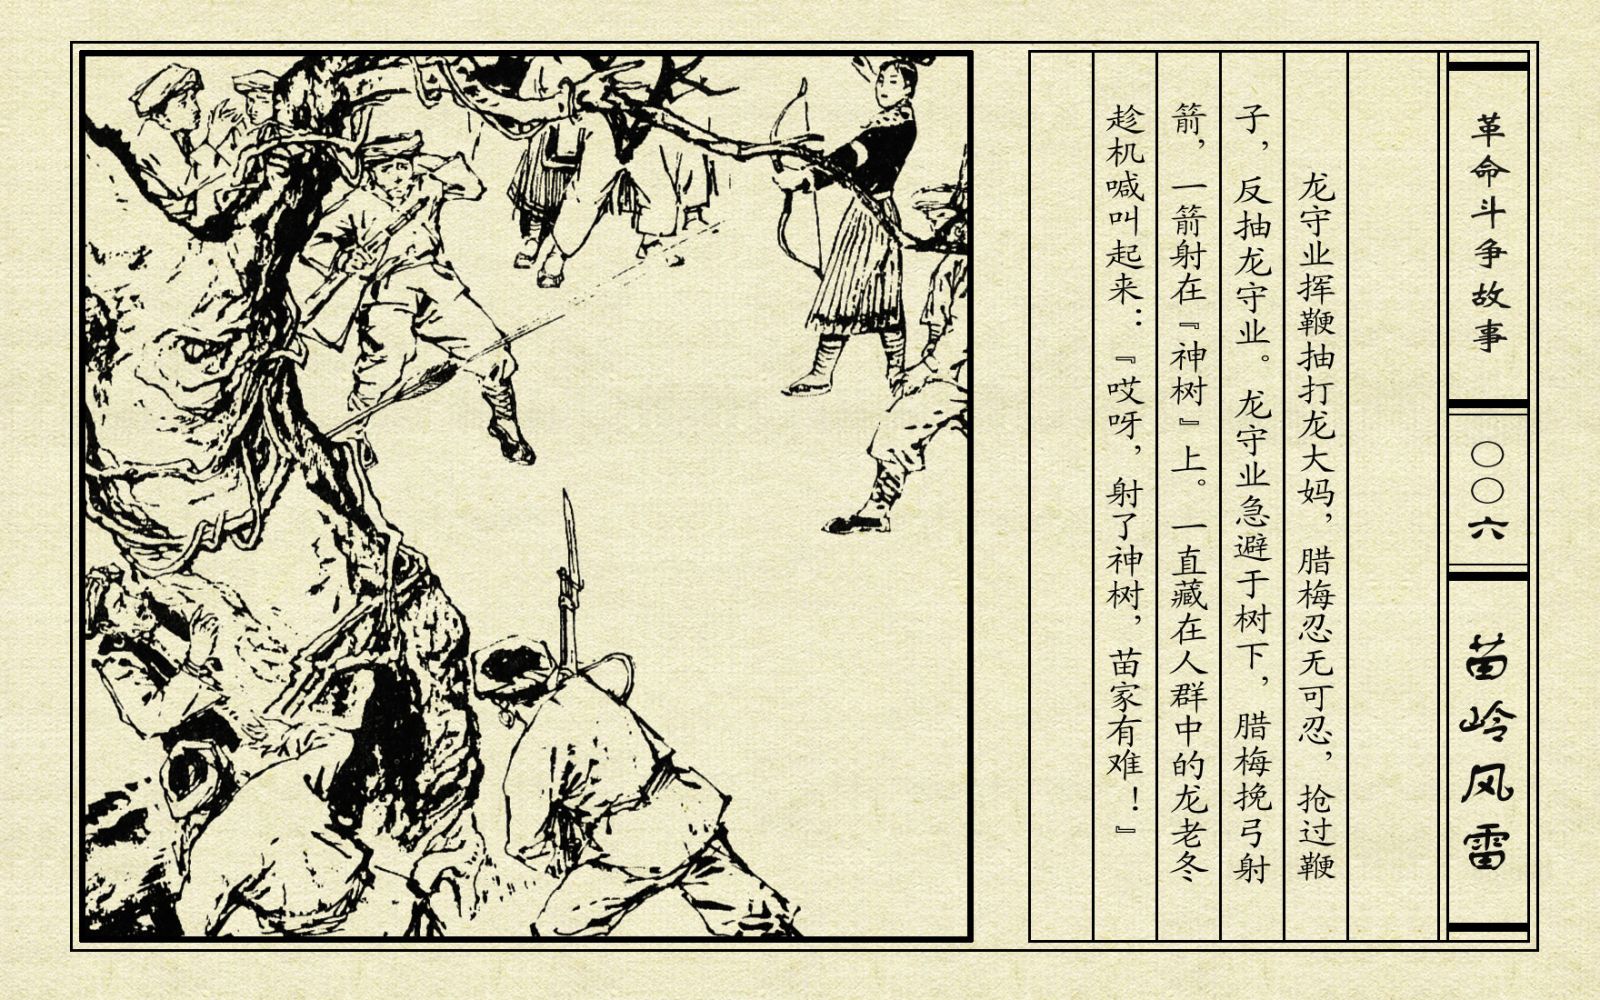 革命斗争故事
〇〇六
苗岭风雷
龙守业挥鞭抽打龙大妈，腊梅忍无可忍，抢过鞭
子，反抽龙守业。龙守业急避于树下，腊梅挽弓射
箭，一箭射在『神树』上。一直藏在人群中的龙老冬
趁机喊叫起来：『哎呀，射了神树，苗家有难！』